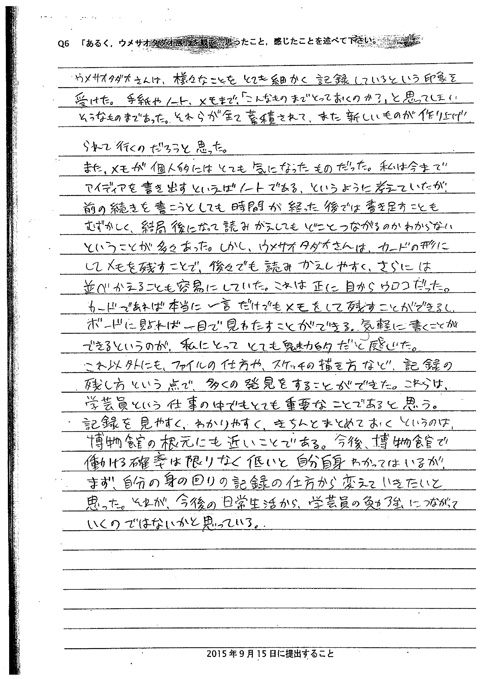 Q6 「あるく，ウメサオタダオ展」を観て，思ったこと，感じたことを述べて下さい。
ウメサオタダオさんは、様々なことをとても細かく記録しているという印象を
受けた。手紙やノート、メモまで、「こんなものまでとっておくのか？」と思ってしまい
そうなものまであった。それらが全て蓄積されて、また新しいものが作り上げ
られて行くのだろうと思った。
また、メモが個人的にはとても気になったものだった。私は今まで
アイディアを書き出すといえばノートである、というように考えていたが、
前の続きを書こうとしても時間が経った後では書き足すことも
むずかしく、結局後になって読みかえしてもどことつながるのかわからない
ということが多々あった。しかし、ウメサオタダオさんは、カードの形に
してメモを残すことで、後々でも読みかえしやすく、さらには
並べかえることも容易にしていた。これは正に目からウロコだった。
カードであれば本当に一言だけでもメモをして残すことができるし、
ボードに貼れば一目で見わたすことができる。気軽に書くことが
できるというのが、私にとってとても魅力的だと感じた。
これ以外にも、ファイルの仕方や、スケッチの描き方など、記録の
残し方という点で、多くの発見をすることができた。これらは、
学芸員という仕事の中でもとても重要なことであると思う。
記録を見やすく、わかりやすく、きちんとまとめておくというのは、
博物館の根元にも近いことである。今後、博物館で
働ける確率は限りなく低いと自分自身わかってはいるが、
まず、自分の身の回りの記録の仕方から変えていきたいと
思った。それが、今後の日常生活から、学芸員の勉強につながって
いくのではないかと思っている。
2015年9月15日に提出すること